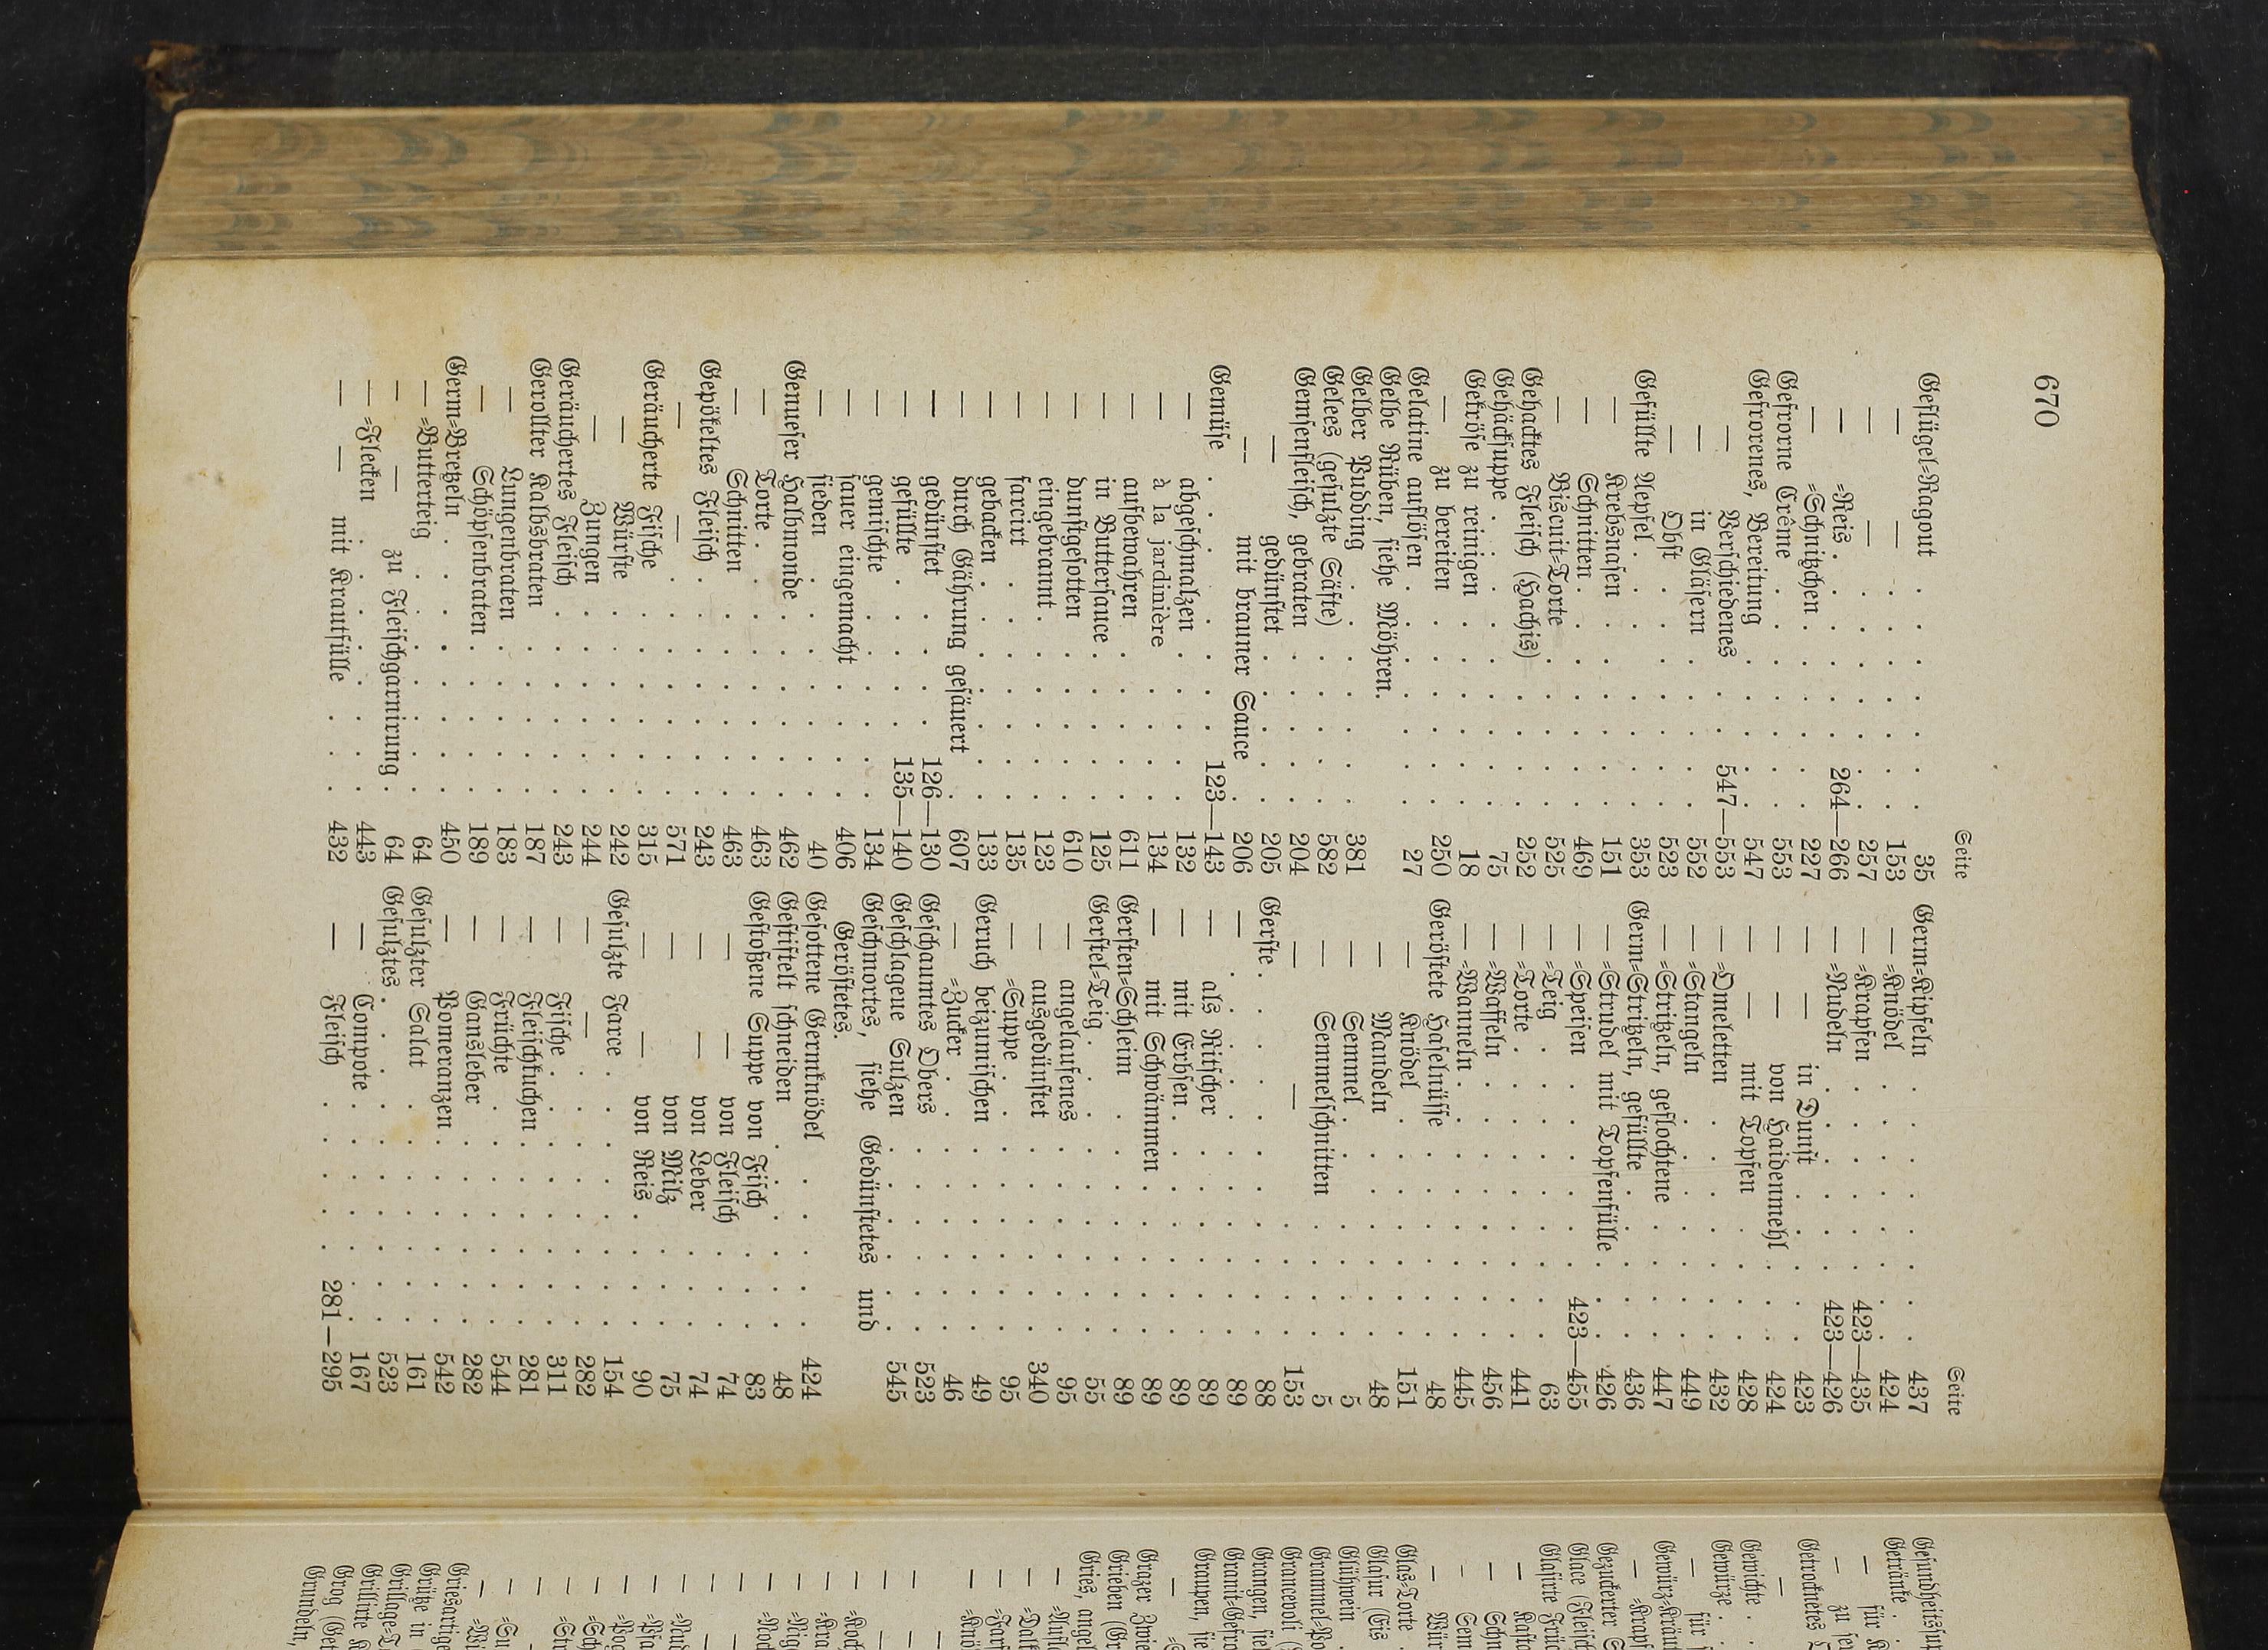 670
Seite
Geflügel=Ragout . . . . . . . 35
— — . . . . . . . 153
— — . . . . . . . 257
— =Reis . . . . . . 264—266
— =Schnitzchen . . . . . . 227
Gefrorne Crême . . . . . . 553
Gefrorenes, Bereitung . . . . . 547
— Verschiedenes . . . 547—553
— in Gläsern . . . . . 552
— Obst . . . . . . 523
Gefüllte Aepfel . . . . . . . 353
— Krebsnasen . . . . . . 151
— Schnitten . . . . . . . 469
— Biscuit=Torte . . . . . 525
Gehacktes Fleisch (Hachis) . . . . 252
Gehäcksuppe . . . . . . . . 75
Gekröse zu reinigen . . . . . . 18
— zu bereiten . . . . . . 250
Gelatine auflösen . . . . . . . 27
Gelbe Rüben, siehe Möhren.
Gelber Pudding . . . . . . . 381
Gelees (gesulzte Säfte) . . . . . 582
Gemsenfleisch, gebraten . . . . . 204
— gedünstet . . . . . 205
— mit brauner Sauce . 206
Gemüse . . . . . . . 123—143
— abgeschmalzen . . . . . 132
— à la jardinière . . . . . 134
— aufbewahren . . . . . 611
— in Buttersauce . . . . . 125
— dunstgesotten . . . . . 610
— eingebrannt . . . . . . 123
— farcirt . . . . . . . 135
— gebacken . . . . . . . 133
— durch Gährung gesäuert . 607
— gedünstet . . . . 126—130
— gefüllte . . . . 135—140
— gemischte . . . . . . 134
— sauer eingemacht . . . . 406
— sieden . . . . . . . 40
Genueser Halbmonde . . . . . 462
— Torte . . . . . . . 463
— Schnitten . . . . . . 463
Gepökeltes Fleisch . . . . . . 243
— — . . . . . . . 571
Geräucherte Fische . . . . . . 315
— Würste . . . . . . 242
— Zungen . . . . . . 244
Geräuchertes Fleisch . . . . . . 243
Gerollter Kalbsbraten . . . . . 187
— Lungenbraten . . . . . 183
— Schöpsenbraten . . . . . 189
Germ=Bretzeln . . . . . . . 450
— =Butterteig . . . . . . . 64
— — zu Fleischgarnirung . 64
— =Flecken . . . . . . . 443
— — mit Krautfülle . . . 432
Seite
Germ=Kipfeln . . . . . . . 437
— =Knödel . . . . . . . 424
— =Krapfen . . . . . 423—435
— =Nudeln . . . . . 423—426
— — in Dunst . . . . . 423
— — von Haidenmehl . . . 424
— — mit Topfen . . . . 428
— =Omeletten . . . . . . 432
— =Stangeln . . . . . . 449
— =Stritzeln, geflochtene . . . 447
Germ=Stritzeln, gefüllte . . . . 436
— =Strudel mit Topfenfülle . . 426
— =Speisen . . . . . 423—455
— =Teig . . . . . . . . 63
— =Torte . . . . . . . 441
— =Waffeln . . . . . . . 456
— =Wanneln . . . . . . . 445
Geröstete Haselnüsse . . . . . . 48
— Knödel . . . . . . . 151
— Mandeln . . . . . . . 48
— Semmel . . . . . . . 5
— Semmelschnitten . . . . . 5
— — . . . . . . 153
Gerste . . . . . . . . . . 88
— . . . . . . . . . . 89
— als Ritscher . . . . . . 89
— mit Erbsen . . . . . . 89
— mit Schwämmen . . . . . 89
Gersten=Schleim . . . . . . . 89
Gerstel=Teig . . . . . . . . 55
— angelaufenes . . . . . . 95
— ausgedünstet . . . . . . 340
— =Suppe . . . . . . . . 95
Geruch beizumischen . . . . . . 49
— =Zucker . . . . . . . . 46
Geschaumtes Obers . . . . . . 523
Geschlagene Sulzen . . . . . . 545
Geschmortes, siehe Gedünstetes und
Geröstetes.
Gesottene Germknödel . . . . . 424
Gestiftelt schneiden . . . . . . 48
Gestoßene Suppe von Fisch . . . . 83
— — von Fleisch . . . 74
— — von Leber . . . . 74
— — von Milz . . . . 75
— — von Reis . . . . 90
Gesulzte Farce . . . . . . . 154
— — . . . . . . . 282
— Fische . . . . . . . 311
— Fleischkuchen . . . . . . 281
— Früchte . . . . . . . 544
— Gansleber . . . . . . . 282
— Pomeranzen . . . . . . 542
Gesulzter Salat . . . . . . . 161
Gesulztes . . . . . . . . . 523
— Compote . . . . . . . 167
— Fleisch . . . . . 281—295
Getränke .
— für
— zu
Getrocknetes
—
Gewichte .
Gewürze .
— für
Gewürz=
— =Krapf
Gezuckerter
Glace
Glasirte
—
—
—
—
Glas=Torte
Glasur (Eis
Glühwein
—
Granit=
Graupen,
—
Grazer
Grieben
Gries,
—
—
—
Griesartige
Grütze in
Grillage=T
Grillirte
Grog
Grundeln,